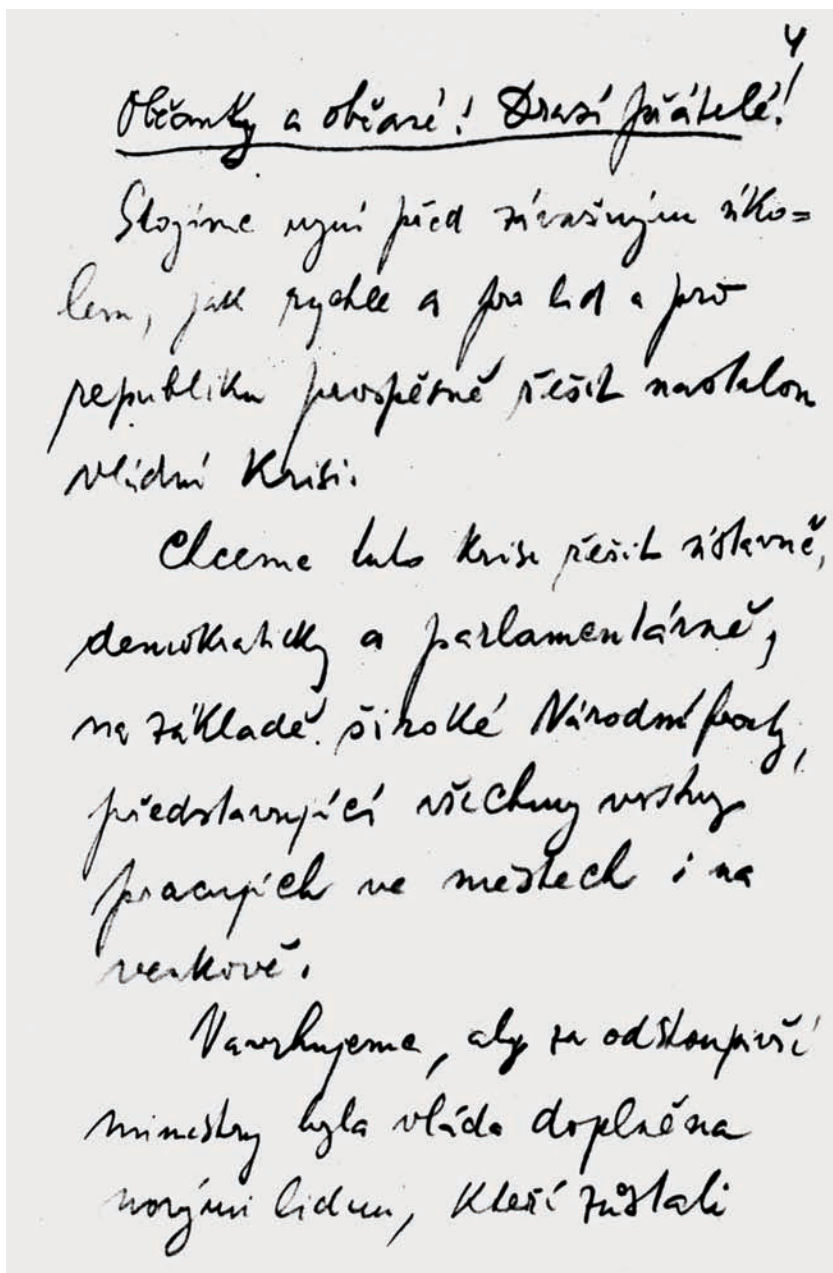 4
Občanky a občané! Drazí přátelé!
Stojíme nyní před závažným úko=
lem, jak rychle a pro lid a pro
republiku prospěšně řešit nastalou
vládní krisi.
Chceme tuto krisi řešit ústavně,
demokraticky a parlamentárně,
na základě široké Národní fronty,
představující všechny vrstvy
pracujících ve městech i na
venkově.
Navrhujeme, aby za odstoupivší
ministry byla vláda doplněna
novými lidmi, kteří zůstali